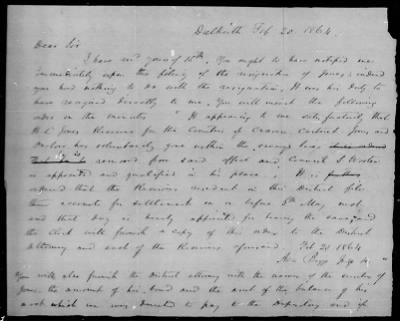 Dalkeith Feb 20. 1864.
Dear Sir
I have recd yours of 15th. You ought to have notified me
immediately upon the filing of the resignation of Jones; indeed
you had nothing to do with the resignation. It was his duty to
have resigned directly to me. You will insert the following
order on the minutes "It appearing to me satisfactorily that
H C Jones Receiver for the Counties of Craven, Carteret, Jones and
has voluntarily gone within the enemys lines
is removed from said office and Council S Wooten
is appointed and qualified in his place; It is
ordered that the Receivers resident in this District file
their accounts for settlement on or before 5th May next
and that day is hereby appointed for hearing the same, and
the Clerk will furnish a copy of this order to the District
Attorney and each of the Receivers aforesaid. Feb 20 1864
Asa Biggs Judge &c "
You will also furnish the District Attorney with the names of the sureties of
Jones, the amount of his bond and the amt of the balance of his
acct which he was directed to pay to the Depositary and if